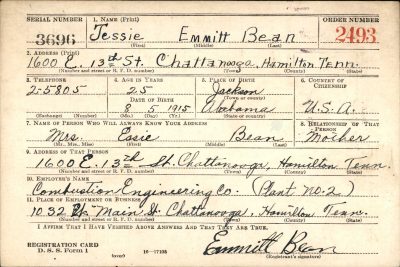 SERIAL NUMBER 1. NAME (Print) ORDER NUMBER
3696 Jessie Emmitt Bean 2493
(First) (Middle) (Last)
2. ADDRESS (Print)
1600 E. 13th St. Chattanooga, Hamilton Tenn.
(Number and street or R. F. D. number) (Town) (County) (State)
3. TELEPHONE 4. AGE IN YEARS 5. PLACE OF BIRTH 6. COUNTRY OF CITIZENSHIP
2-5805 25 Jackson
(Town or county)
DATE OF BIRTH
8 5 1915 Alabama U.S.A.
(Exchange) (Number) (Mo.) (Day) (Yr.) (State or country)
7. NAME OF PERSON WHO WILL ALWAYS KNOW YOUR ADDRESS 8. RELATIONSHIP OF THAT PERSON
Mrs. Essie Bean Mother
(Mr., Mrs., Miss) (First) (Middle) (Last)
9. ADDRESS OF THAT PERSON
1600 E. 13th St. Chattanooga, Hamilton Tenn.
(Number and street or R. F. D. number) (Town) (County) (State)
10. EMPLOYER'S NAME
Combustion Engineering Co. (Plant no. 2)
11. PLACE OF EMPLOYMENT OR BUSINESS
1032 Main St. Chattanooga, Hamilton Tenn.
(Number and street or R. F. D. number) (Town) (County) (State)
I AFFIRM THAT I HAVE VERIFIED ABOVE ANSWERS AND THAT THEY ARE TRUE.
REGISTRATION CARD
D. S. S. Form 1 (over) 16—17105
Emmitt Bean
(Registrant's signature)